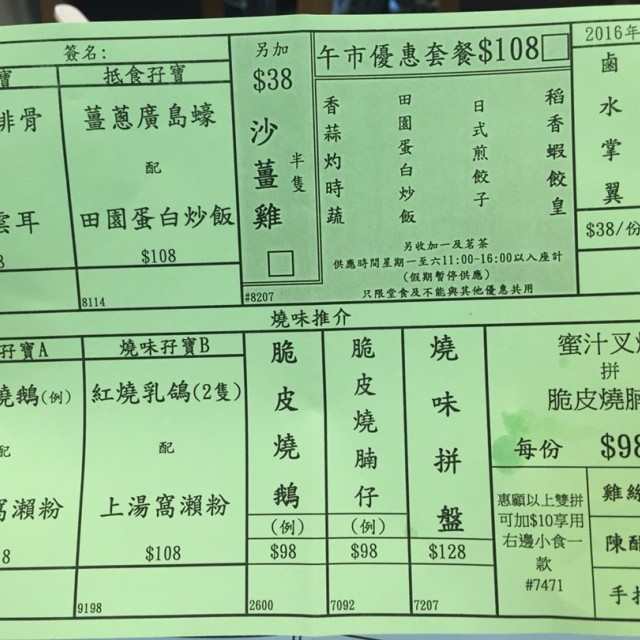 簽名:
寶
抵食孖寶
排骨
雲耳
8
薑蔥廣島蠔
配
田園蛋白炒飯
$108
8114
另加
$38
沙薑雞
半隻
#8207
午市優惠套餐$108
稻香蝦餃皇
日式煎餃子
田園蛋白炒飯
香蒜灼時蔬
另收加一及茗茶
供應時間星期一至六11:00-16:00以入座計
(假期暫停供應)
只限堂食及不能與其他優惠共用
2016年
鹵水掌翼
$38/份
燒味推介
孖寶A
燒鵝(例)
配
窩瀨粉
8
燒味孖寶B
紅燒乳鴿(2隻)
配
上湯窩瀨粉
$108
9198
脆皮燒鵝
(例)
$98
2600
脆皮燒腩仔
(例)
$98
7092
燒味拼盤
$128
7207
蜜汁叉燒
拼
脆皮燒腩
每份 $98
惠顧以上雙拼
可加$10享用
右邊小食一
款
#7471
雞絲
陳醋
手拍